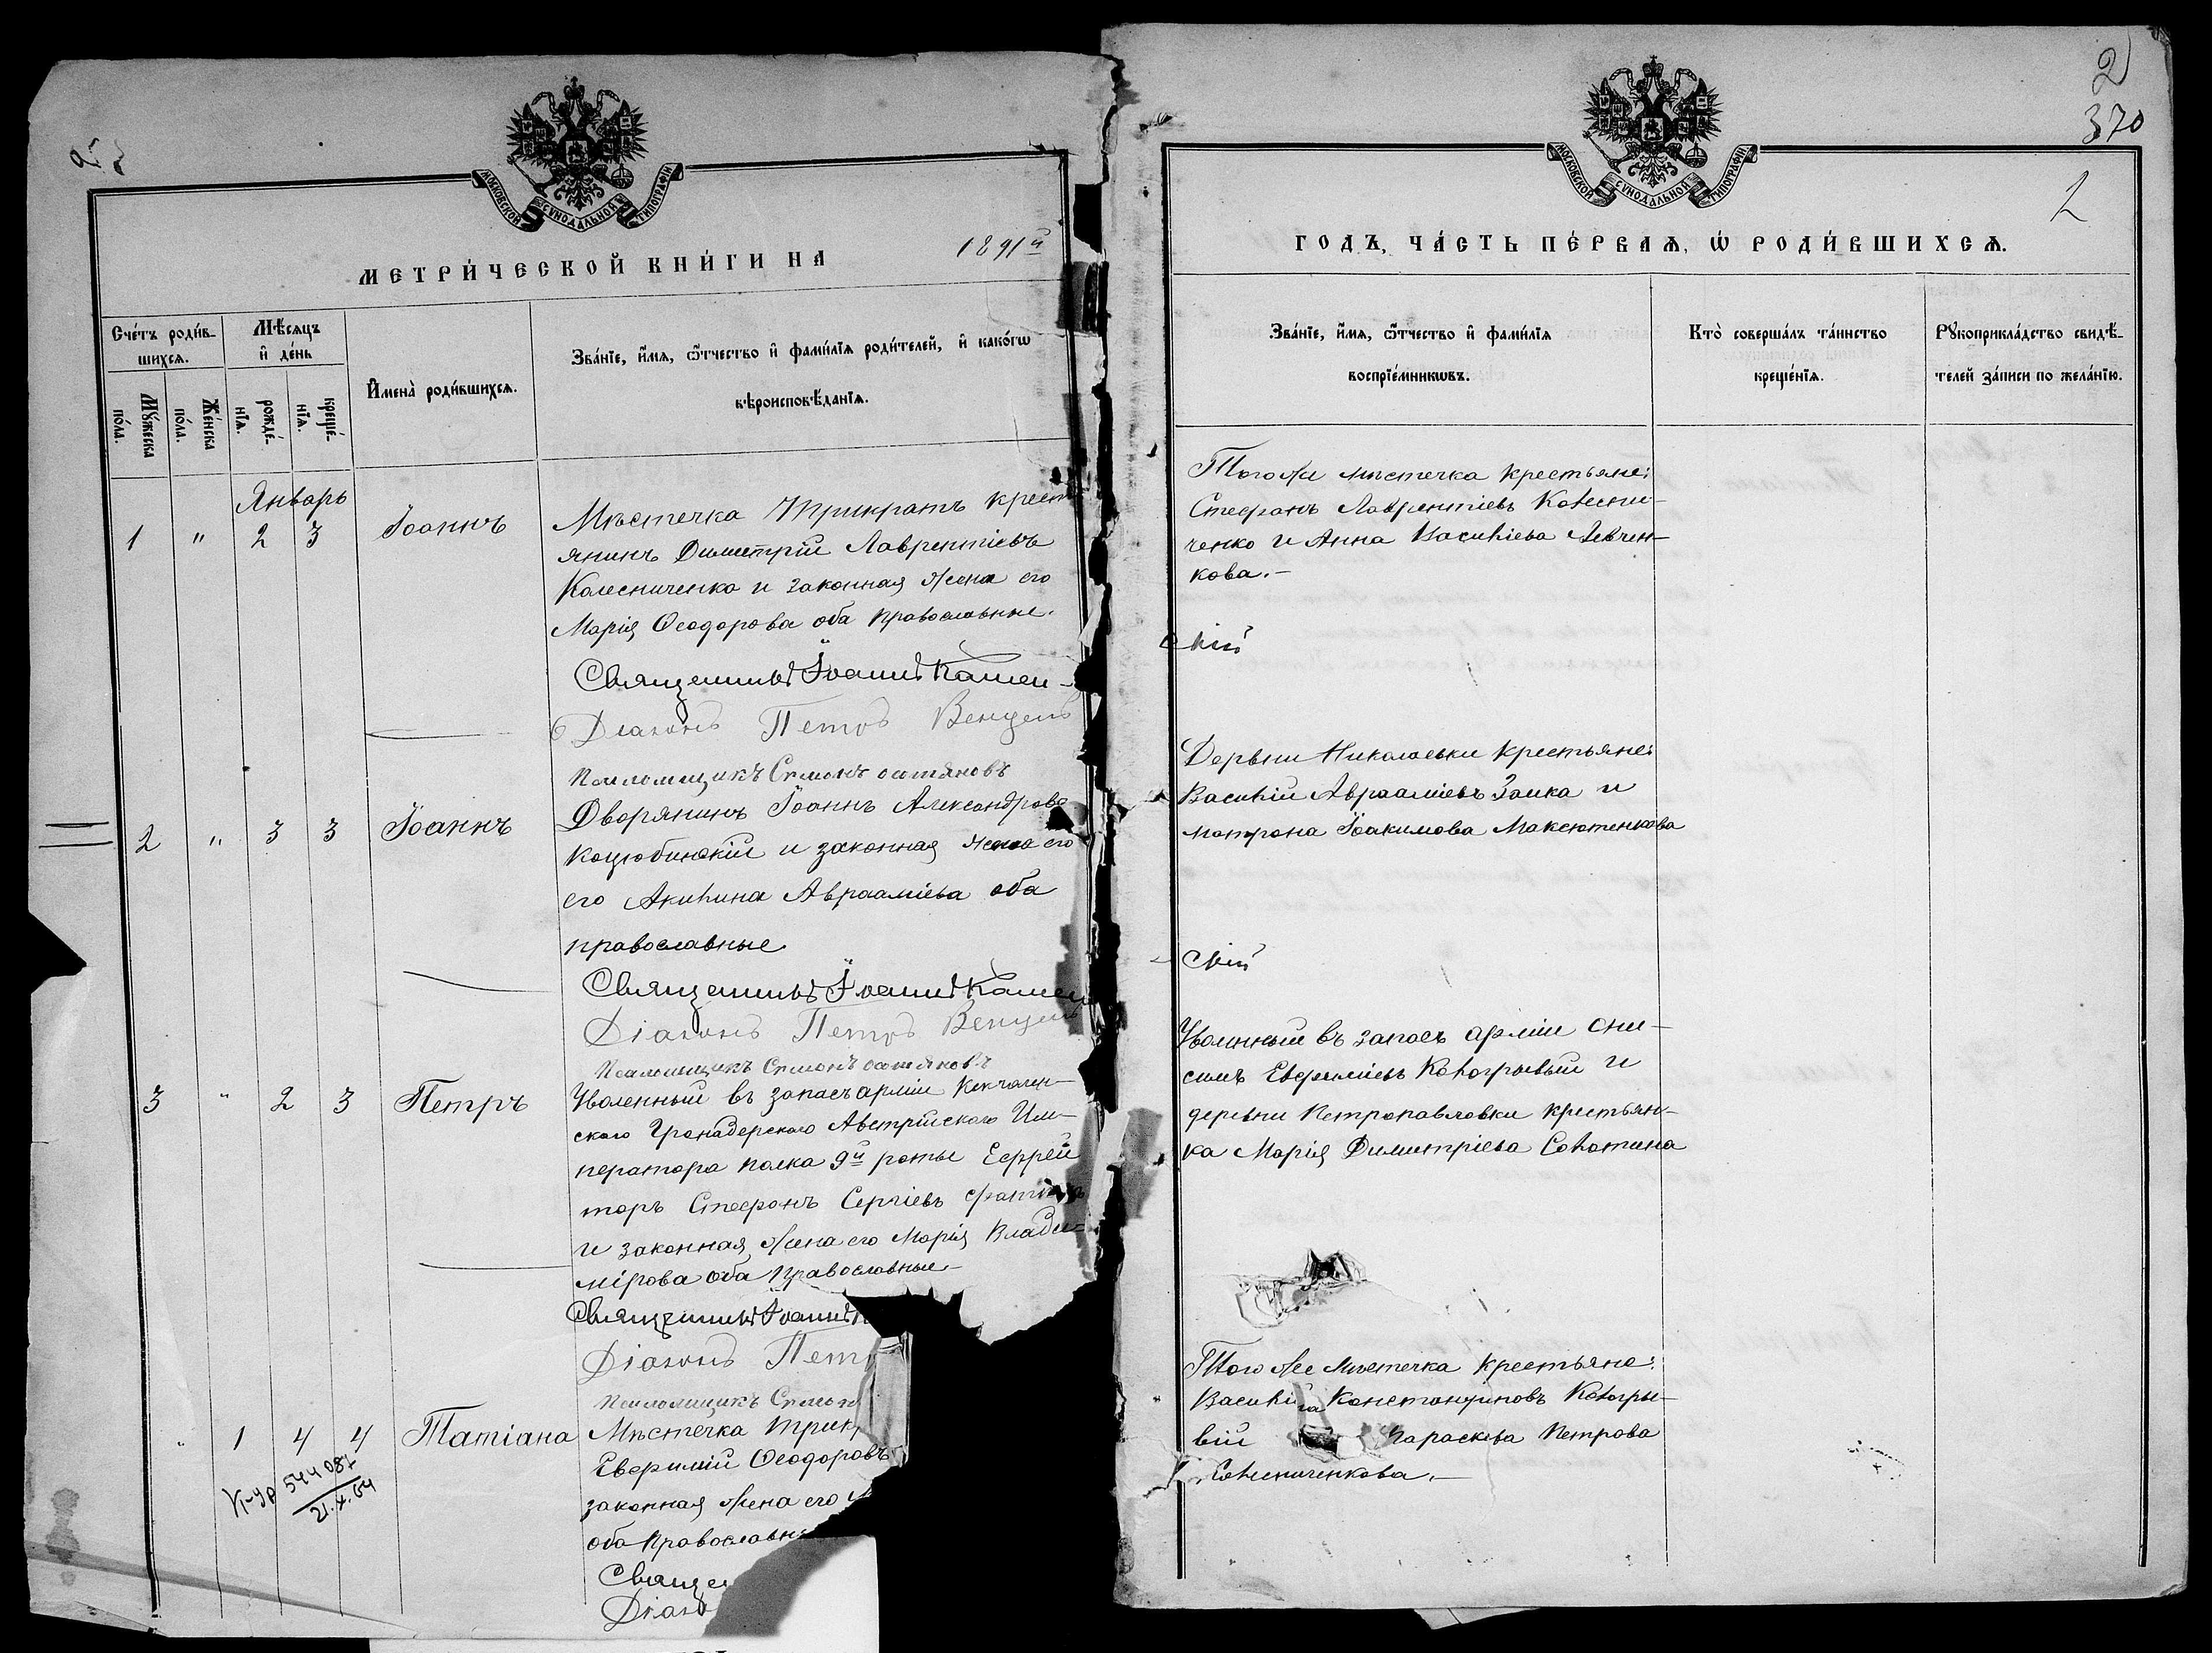 МОСКОВСКОЙ СѴНОДАЛЬНОЙ ТИПОГРАФІИ
МЕТРИ́ЧЕСКОЙ КНИ́ГИ НА 1891й
Сче́тъ роди́в-
шихсѧ.
Мѣ́сѧцъ
и҆ де́нь
Мꙋ́жеска
по́ла.
Же́нска
по́ла.
рожде́-
нїѧ.
креще́-
нїѧ.
И҆мена̀ роди́вшихсѧ.
Зва́нїе, и҆́мѧ, ѻ҆́тчество и҆ фами́лїѧ роди́телей, и҆ како́гѡ
вѣроисповѣ́данїѧ.
Январь
1 " 2 3 Іоаннъ
Мѣстечка Трикратъ крест
янинъ Димитрій Лаврентіевъ
Колесниченко и законная жена его
Марія Ѳеодорова оба православные.
Священникъ Іоаннъ Камен-
Діаконъ Петръ Венцель
Псаломщикъ Симонъ
2 " 3 3 Іоаннъ
Дворянинъ Іоаннъ Александрово
Коцюбинскій и законная жена его
его Акилина Авраамieва оба
православные
Священникъ Іоаннъ Камен
Діаконъ Петръ Венцель
Псаломщикъ Симонъ
3 " 2 3 Петръ
Уволенный въ запасъ арміи Кекчольм-
скаго Гренадерскаго Австрійскаго Им-
ператора полка 9й роты Ефрей
торъ Стефанъ Сергіевъ
и законная жена его Марія Влади-
мірова оба православные.
Священникъ Іоаннъ К
Діаконъ Петр
Псаломщикъ Симон
" 1 4 4 Татіана
Мѣстечка Трик
Евфимій Ѳеодоровъ
законная жена его
оба православны
Священ
Діако
544081
21.X.64
2
370
2
МОСКОВСКОЙ СѴНОДАЛЬНОЙ ТИПОГРАФІИ
ГОДЪ, ЧА́СТЬ ПЕ́РВАѦ, Ѡ҆ РОДИ́ВШИХСѦ.
Зва́нїе, и҆́мѧ, ѻ҆́тчество и҆ фами́лїѧ
воспрїе́мникѡвъ.
Кто̀ соверша́лъ та́инство
креще́нїѧ.
Рꙋкоприкла́дство свидѣ́-
телей за́писи по жела́нїю.
Того же мѣстечка крестьяне:
Стефанъ Лаврентіевъ Колесни-
ченко и Анна Василіева Левчен-
кова.-
скій
Деревни Николаевки крестьяне:
Василій Авраамiевъ Заика и
матрона Іоакимова Максютенкова
скій
Уволенный въ запасъ арміи Они-
симъ Евфиміевъ Кологрывый и
деревни Петропавловки крестьян-
ка Марія Димитріева Солотина
Того же мѣстечка крестьяне:
Василій Константиновъ Кологры-
вій Параскева Петрова
Колесниченкова.-